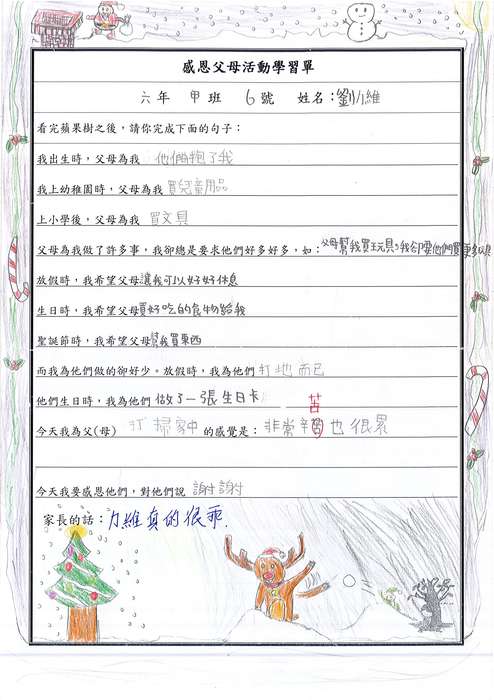 感恩父母活動學習單
六年 甲班 6號 姓名：劉力維
看完蘋果樹之後，請你完成下面的句子：
我出生時，父母為我 他們抱了我
我上幼稚園時，父母為我 買兒童用品
上小學後，父母為我 買文具
父母為我做了許多事，我卻總是要求他們好多好多，如：父母幫我買玩具，我卻要他們買更多玩具
放假時，我希望父母讓我可以好好休息
生日時，我希望父母買好吃的食物給我
聖誕節時，我希望父母幫我買東西
而我為他們做的卻好少。放假時，我為他們 打地而已
他們生日時，我為他們 做了一張生日卡
苦
今天我為父(母) 打掃家中 的感覺是：非常辛苦也很累
今天我要感恩他們，對他們說 謝謝
家長的話：力維真的很乖.